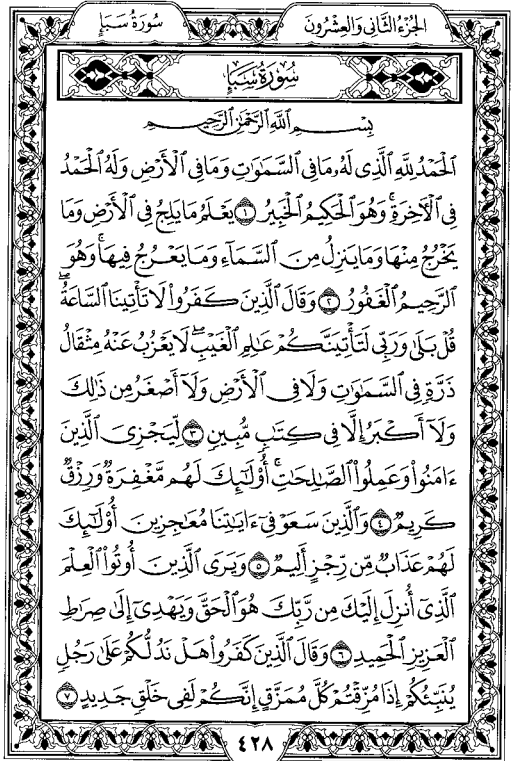 سُورَةُ سَبَإٍ
الجُزْءُ الثَّانِي وَالعِشْرُونَ
سُورَةُ سَبَإٍ
بِسْمِ ٱللَّهِ ٱلرَّحْمَٰنِ ٱلرَّحِيمِ
ٱلْحَمْدُ لِلَّهِ ٱلَّذِى لَهُۥ مَا فِى ٱلسَّمَٰوَٰتِ وَمَا فِى ٱلْأَرْضِ وَلَهُ ٱلْحَمْدُ
فِى ٱلْءَاخِرَةِ ۚ وَهُوَ ٱلْحَكِيمُ ٱلْخَبِيرُ ١ يَعْلَمُ مَا يَلِجُ فِى ٱلْأَرْضِ وَمَا
يَخْرُجُ مِنْهَا وَمَا يَنزِلُ مِنَ ٱلسَّمَآءِ وَمَا يَعْرُجُ فِيهَا ۚ وَهُوَ
ٱلرَّحِيمُ ٱلْغَفُورُ ٢ وَقَالَ ٱلَّذِينَ كَفَرُوا۟ لَا تَأْتِينَا ٱلسَّاعَةُ ۖ
قُلْ بَلَىٰ وَرَبِّى لَتَأْتِيَنَّكُمْ عَٰلِمِ ٱلْغَيْبِ ۖ لَا يَعْزُبُ عَنْهُ مِثْقَالُ
ذَرَّةٍ فِى ٱلسَّمَٰوَٰتِ وَلَا فِى ٱلْأَرْضِ وَلَآ أَصْغَرُ مِن ذَٰلِكَ
وَلَآ أَكْبَرُ إِلَّا فِى كِتَٰبٍ مُّبِينٍ ٣ لِّيَجْزِىَ ٱلَّذِينَ
ءَامَنُوا۟ وَعَمِلُوا۟ ٱلصَّٰلِحَٰتِ ۚ أُو۟لَٰٓئِكَ لَهُم مَّغْفِرَةٌ وَرِزْقٌ
كَرِيمٌ ٤ وَٱلَّذِينَ سَعَوْ فِىٓ ءَايَٰتِنَا مُعَٰجِزِينَ أُو۟لَٰٓئِكَ
لَهُمْ عَذَابٌ مِّن رِّجْزٍ أَلِيمٌ ٥ وَيَرَى ٱلَّذِينَ أُوتُوا۟ ٱلْعِلْمَ
ٱلَّذِىٓ أُنزِلَ إِلَيْكَ مِن رَّبِّكَ هُوَ ٱلْحَقَّ وَيَهْدِىٓ إِلَىٰ صِرَٰطِ
ٱلْعَزِيزِ ٱلْحَمِيدِ ٦ وَقَالَ ٱلَّذِينَ كَفَرُوا۟ هَلْ نَدُلُّكُمْ عَلَىٰ رَجُلٍ
يُنَبِّئُكُمْ إِذَا مُزِّقْتُمْ كُلَّ مُمَزَّقٍ إِنَّكُمْ لَفِى خَلْقٍ جَدِيدٍ ٧
٤٢٨